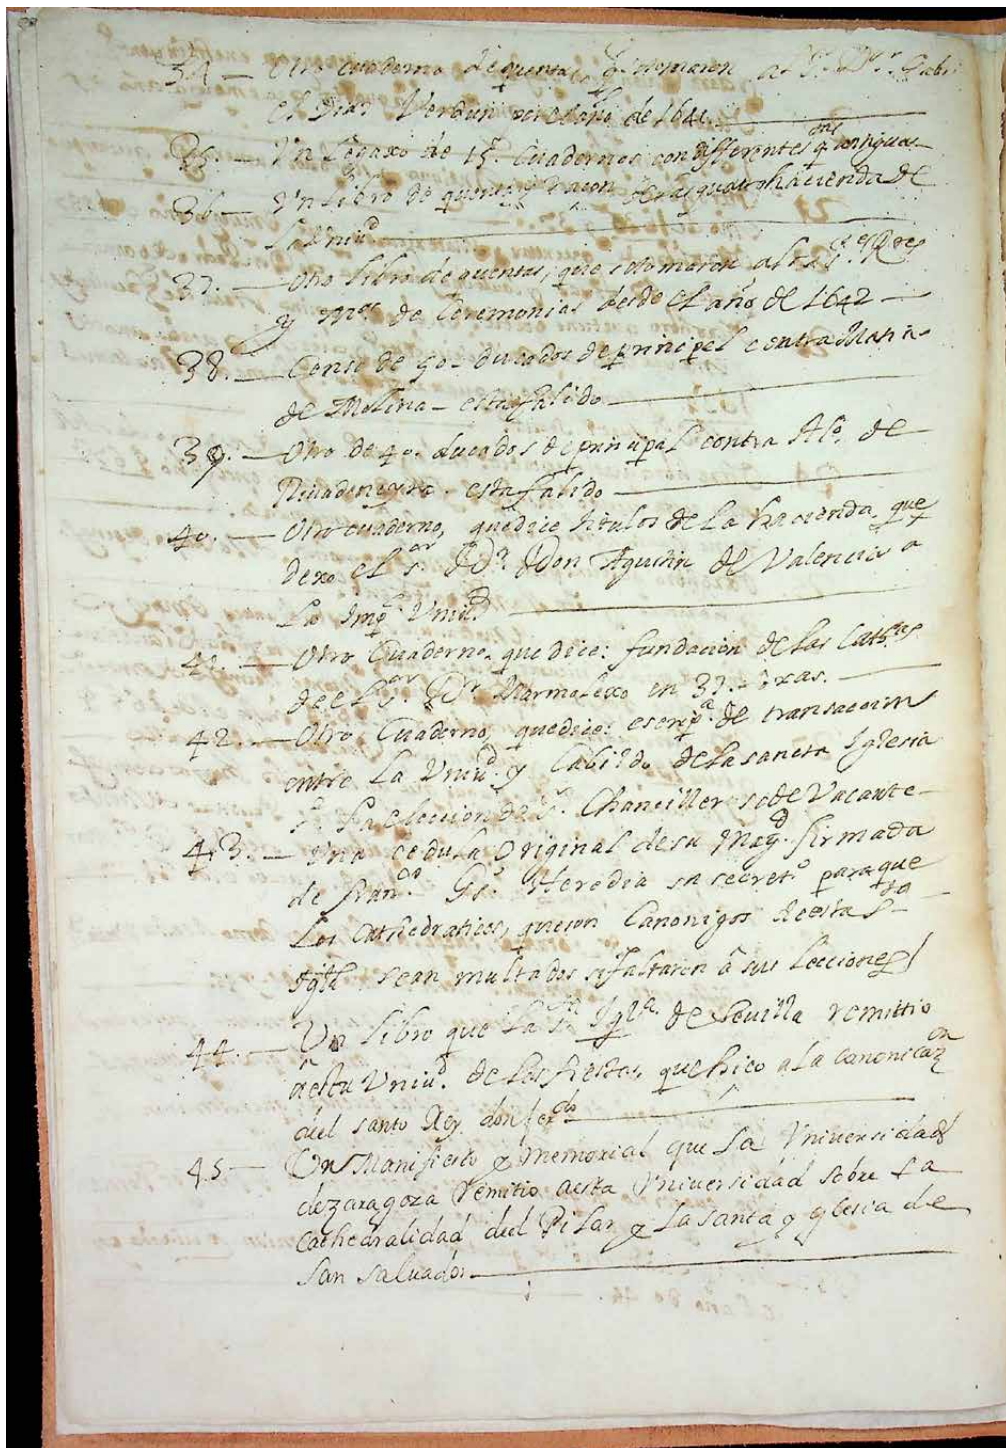 34. — Otro cuaderno de quentas q. se tomaron al S. Dr. Gabri
el Diaz Verdun por el año de 1641.
35. — Un legaxo de 15. Cuadernos con differentes q.tas antiguas
36 — Un libro de quenta y raçon de las hacienda de
la Uniud
37. — Otro libro de quentas, que se tomaron a los S.es Res
y Mros de Ceremonias desde el año de 1642 —
38. — Censo de 50. ducados de principal contra Maria
de Molina — esta falido
39. — Otro de 40. ducados de principal contra Alo. de
Riuadeneyra. esta falido
40. — Otro cuaderno, que dice titulos de la hacienda que
dexo el s.or D.r Don Agustin de Valencia a
la Imp.l Uniu.d
41. — Otro Cuaderno, que dice: fundacion de las Cath.as
de el S.or D.r Marmolexo en 37. oxas.
42. — Otro Cuaderno, que dice: escrip.a de transaccion
entre la Uniu.d y Cabildo de la sancta Iglesia
s.e la eleccion de Chanciller sede Vacante —
43. — Una cedula Original de su Mag.d firmada
de Fran.co Gs.o Heredia su secret.o para que
los Cathedraticos, que son Canonigos de esta S.ta
Igle sean multados si faltaren a sus Lecciones
44. — Un libro que la S.ta Igl.a de Seuilla remittio
a esta Uniu.d de las fiestas, que hiço a la canonizaon
del santo Rey don fer.do
45 — Un Manifiesto y Memorial que la Vniversidad
de zaragoza remitio a esta Vniversidad sobre la
Cathedralidad del Pilar y la santa yglesia de
san saluador